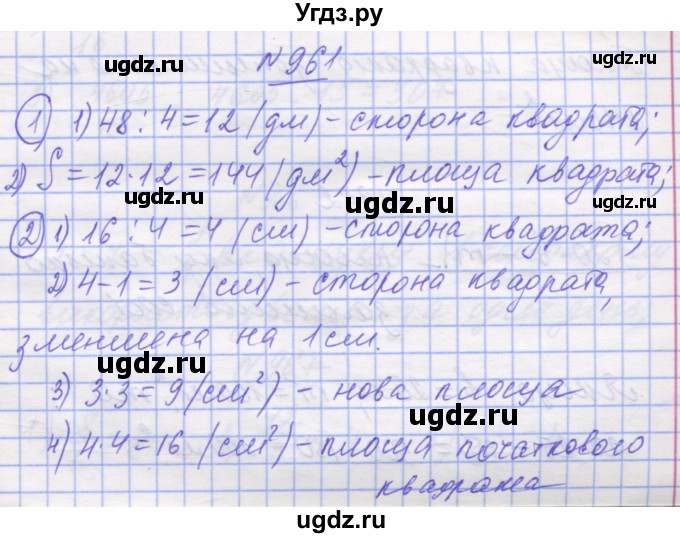 Угдз.ру
N 961
ugdz.ru ugdz.ru
1) 1) 48 : 4 = 12 (дм) - сторона квадрата;
2) S = 12·12 = 144 (дм²) - площа квадрата;
ugdz.ru ugdz.ru
2) 1) 16 : 4 = 4 (см) - сторона квадрата;
ugdz.ru
2) 4 - 1 = 3 (см) - сторона квадрата,
ugdz.ru
зменшена на 1 см.
ugdz.ru
3) 3·3 = 9 (см²) - нова площа
ugdz.ru
4) 4·4 = 16 (см²) - площа початкового
ugdz.ru
квадрата
ugdz.ru